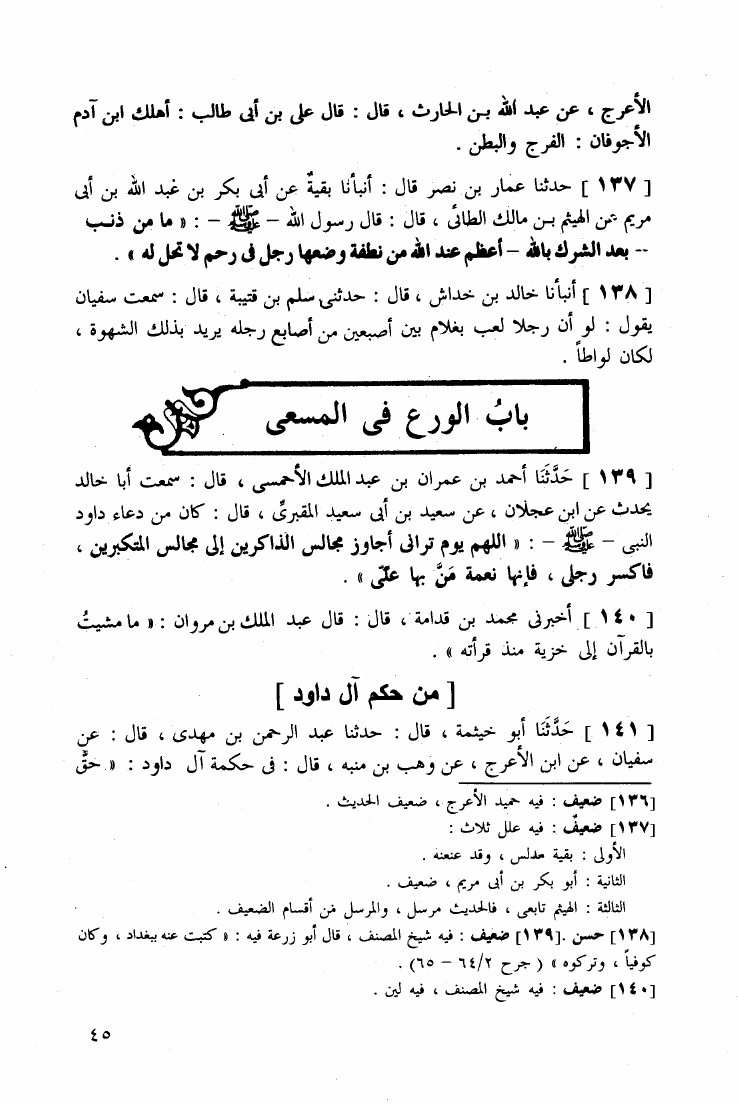 الأعرج ، عن عبد الله بـن الحارث ، قال : قال على بن أبى طالب : أهلك ابن آدم
الأجوفان : الفرج والبطن .
[ ١٣٧ ] حدثنا عمار بن نصر قال : أنبأنا بقيةُ عن أبى بكر بن عبد الله بن أبى
مريم عن الهيثم بـن مالك الطائى ، قال : قال رسول الله – ﷺ – : « ما من ذنـب
-- بعد الشرك بالله – أعظم عند الله من نطفة وضعها رجل فى رحم لا تحل له » .
[ ١٣٨ ] أنبأنا خالد بن خداش ، قال : حدثنى سلم بن قتيبة ، قال : سمعت سفيان
يقول : لو أن رجلا لعب بغلام بين أصبعين من أصابع رجله يريد بذلك الشهوة ،
لكان لواطاً .
بابُ الورع فى المسعى
[ ١٣٩ ] حَدَّثَنَا أحمد بن عمران بن عبد الملك الأحمسى ، قال : سمعت أبا خالد
يحدث عن ابن عجلان ، عن سعيد بن أبى سعيد المقبرىِّ ، قال : كان من دعاء داود
النبى – ﷺ – : « اللهم يوم ترانى أجاوز مجالس الذاكرين إلى مجالس المتكبرين ،
فاكسر رجلى ، فإنها نعمة مَنَّ بها علَّى » .
[ ١٤٠ ] أخبرنى محمد بن قدامة ، قال : قال عبد الملك بن مروان : « ما مشيتُ
بالقرآن إلى خزية منذ قرأته » .
[ من حكم آل داود ]
[ ١٤١ ] حَدَّثَنَا أبو خيثمة ، قال : حدثنا عبد الرحمن بن مهدى ، قال : عن
سفيان ، عن ابن الأعرج ، عن وهب بن منبه ، قال : فى حكمة آل داود : « حقَّ
[١٣٦] ضعيف : فيه حميد الأعرج ، ضعيف الحديث .
[١٣٧] ضعيفٌ : فيه علل ثلاث :
الأولى : بقية مدلس ، وقد عنعنه .
الثانية : أبو بكر بن أبى مريم ، ضعيف .
الثالثة : الهيثم تابعى ، فالحديث مرسل ، والمرسل من أقسام الضعيف .
[١٣٨] حسن .[١٣٩] ضعيف : فيه شيخ المصنف ، قال أبو زرعة فيه : « كتبت عنه ببغداد ، وكان
كوفياً ، وتركوه » ( جرح ٦٤/٢ – ٦٥) .
[١٤٠] ضعيف : فيه شيخ المصنف ، فيه لين .
٤٥